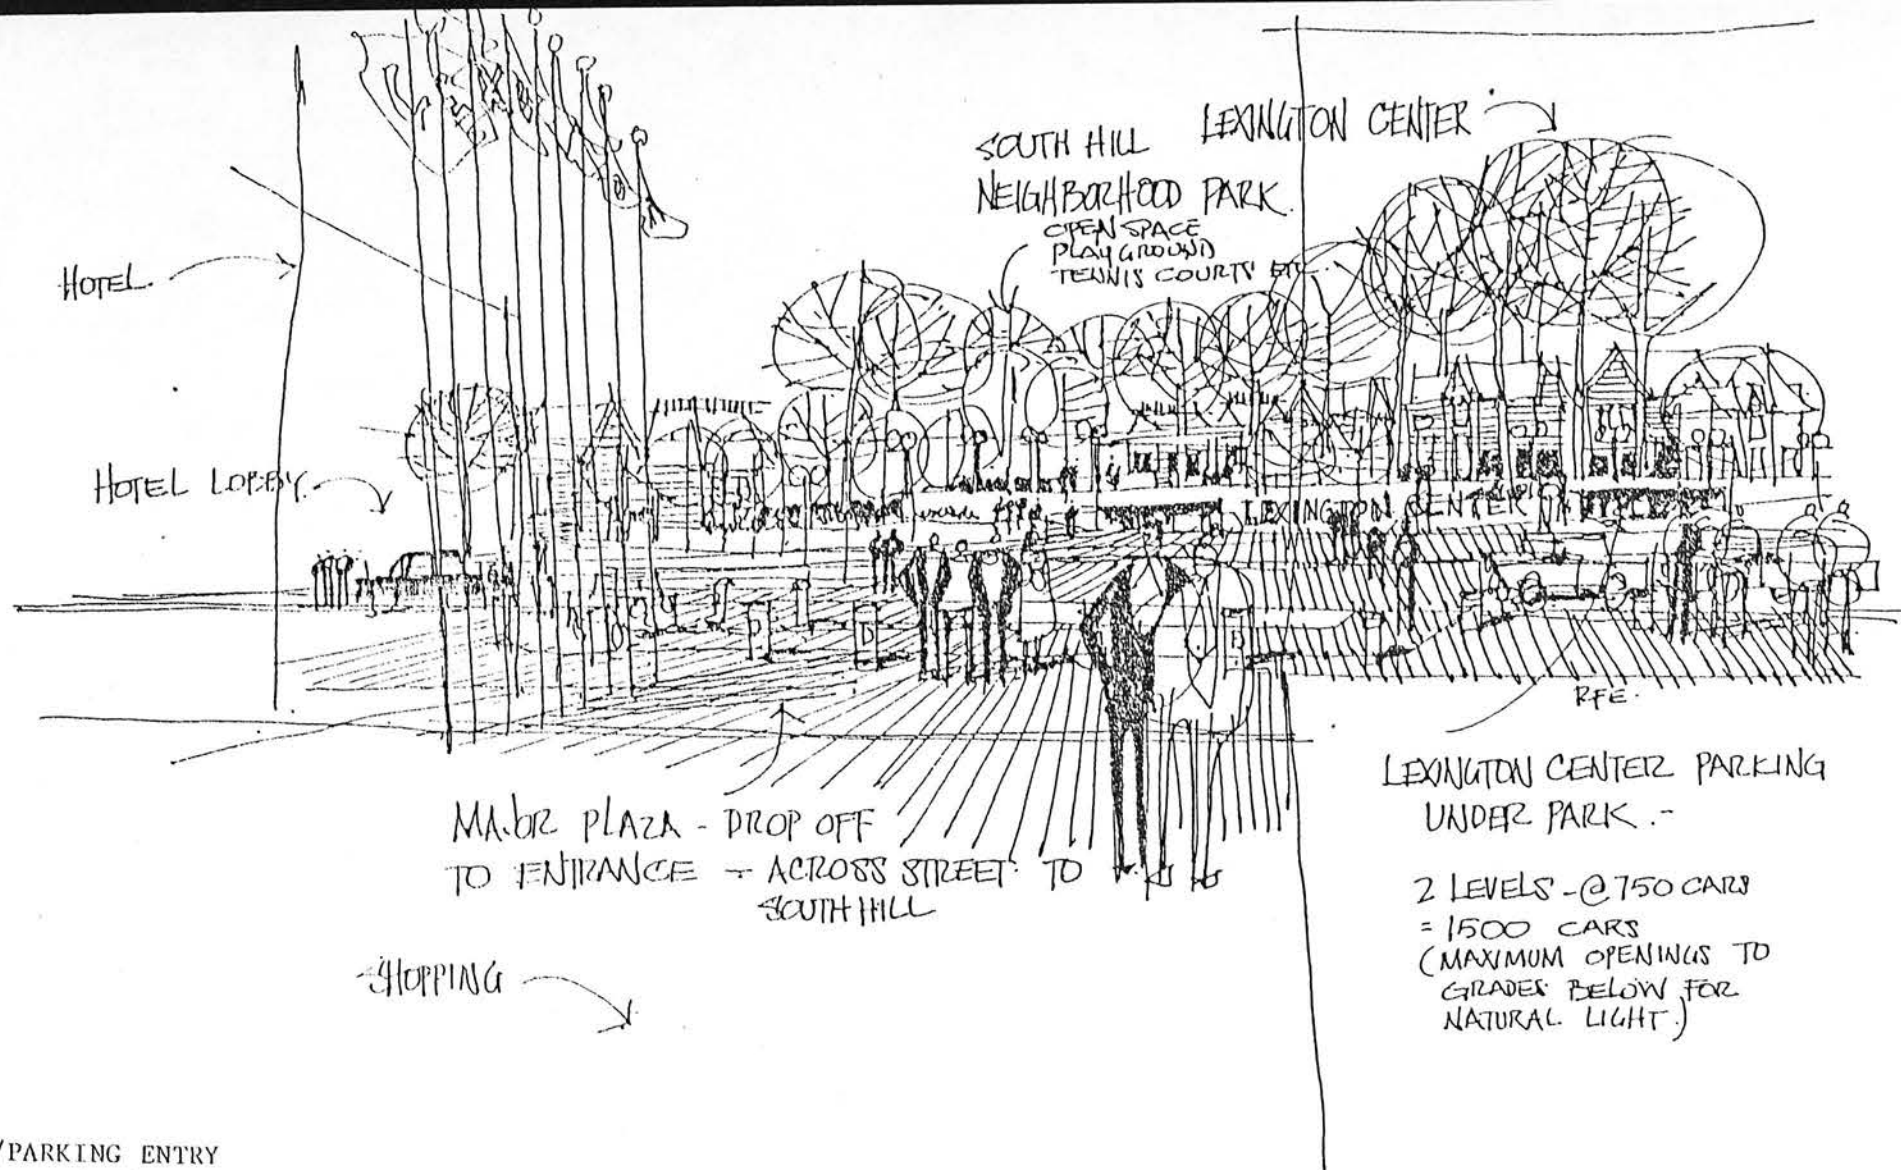 LEXINGTON CENTER
SOUTH HILL
NEIGHBORHOOD PARK.
OPEN SPACE
PLAYGROUND
TENNIS COURTS ETC.
HOTEL
HOTEL LOBBY.
LEXINGTON CENTER
RFE.
MAJOR PLAZA - DROP OFF
TO ENTRANCE - ACROSS STREET TO
SOUTH HILL
LEXINGTON CENTER PARKING
UNDER PARK.-
2 LEVELS -@ 750 CARS
= 1500 CARS
(MAXIMUM OPENINGS TO
GRADES BELOW FOR
NATURAL LIGHT.)
SHOPPING
/PARKING ENTRY